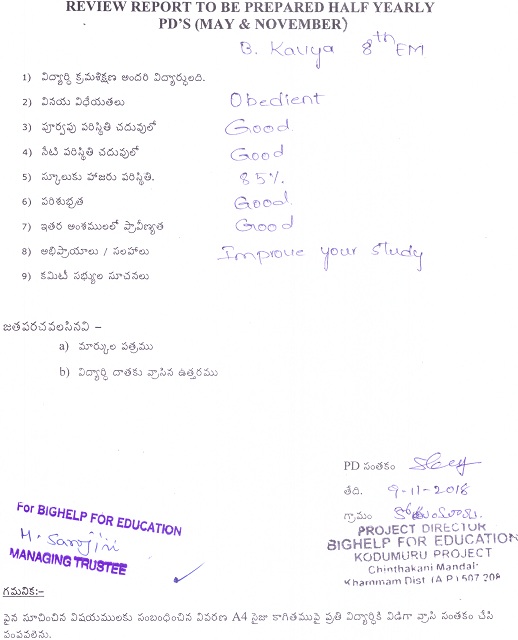 REVIEW REPORT TO BE PREPARED HALF YEARLY
PD'S (MAY & NOVEMBER)
B. Kavya 8th EM
1) విద్యార్ధి క్రమశిక్షణ అందరి విద్యార్ధులది.
2) వినయ విధేయతలు Obedient
3) పూర్వపు పరిస్థితి చదువులో Good
4) నేటి పరిస్థితి చదువులో Good
5) స్కూలుకు హాజరు పరిస్థితి. 85%
6) పరిశుభ్రత Good
7) ఇతర అంశములలో ప్రావీణ్యత Good
8) అభిప్రాయాలు / సలహాలు Improve your study
9) కమిటీ సభ్యుల సూచనలు
జతపరచవలసినవి –
a) మార్కుల పత్రము
b) విద్యార్ధి దాతకు వ్రాసిన ఉత్తరము
PD సంతకం
తేది. 9-11-2018
గ్రామం
For BIGHELP FOR EDUCATION
H. Sarojini
MANAGING TRUSTEE
PROJECT DIRECTOR
BIGHELP FOR EDUCATION
KODUMURU PROJECT
Chinthakani Mandal
Khammam Dist (A.P) 507 208
గమనిక:–
పైన సూచించిన విషయములకు సంబంధించిన వివరణ A4 సైజు కాగితముపై ప్రతి విద్యార్ధికి విడిగా వ్రాసి సంతకం చేసి
పంపవలెను.